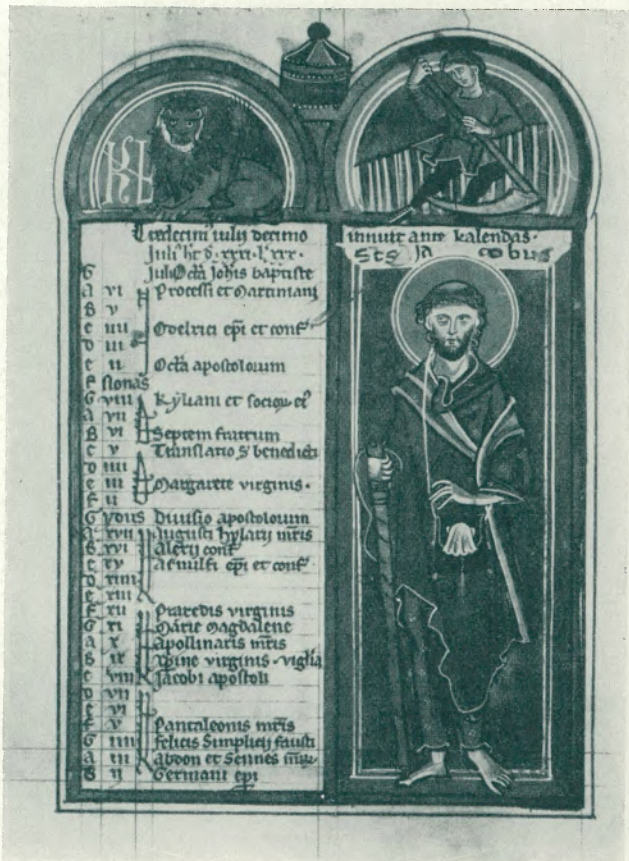 KL
Tredecim iulii decimo
innuit ante kalendas.
Iuli' ht d. xxxi. l. xxx.
STS IACOBUS
G Iulii Octã Iohis baptiste
a vi Processi et Martiniani
B v
c iiii Odelrici epi et conf
d iii
e ii Octã apostolorum
f Nonas
G viii Kyliani et socioꝝ ei'
a vii
B vi Septem fratrum
c v Translatio S benedicti
d iiii
e iii Margarete virginis.
f ii
G ydus Diuisio apostolorum
a xvii Augusti hylarii mris
B xvi Alexii conf
c xv Arnulfi epi et conf
d xiiii
e xiii
f xii Praxedis virginis
G xi Marie Magdalene
a x Apollinaris mris
B ix Xpine virginis. vigilia
c viii Jacobi apostoli
d vii
e vi
f v Pantaleonis mris
G iiii felicis Simplicii fausti
a iii Abdon et Sennes
B ii Germani epi